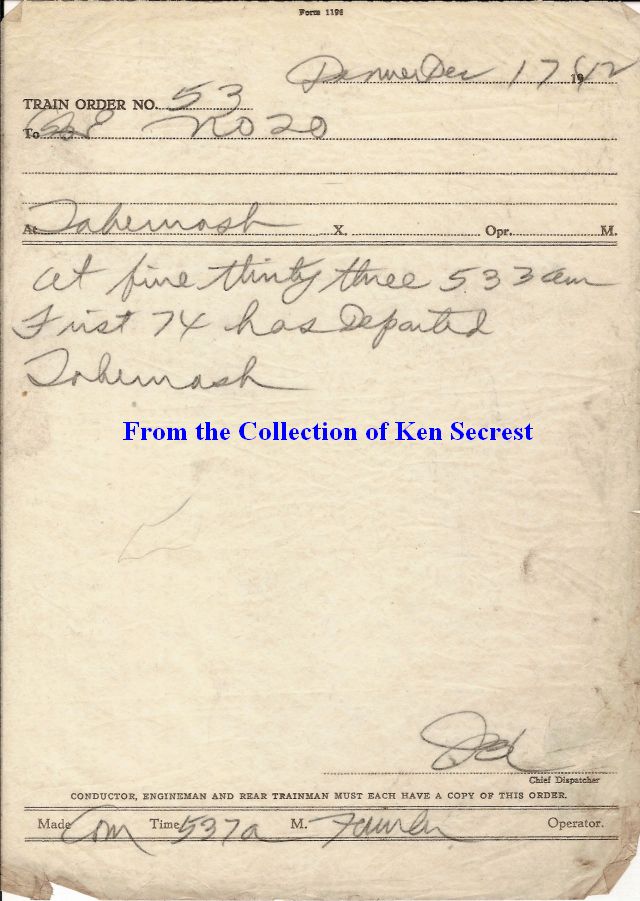 Form 1196
Denver Dec 17 1942
TRAIN ORDER NO. 53
To C&E No 20
At Tabernash X. Opr. M.
At five thirty three 533 am
First 74 has Departed
Tabernash
From the Collection of Ken Secrest
Chief Dispatcher
CONDUCTOR, ENGINEMAN AND REAR TRAINMAN MUST EACH HAVE A COPY OF THIS ORDER.
Made Com Time 537a M. Operator.